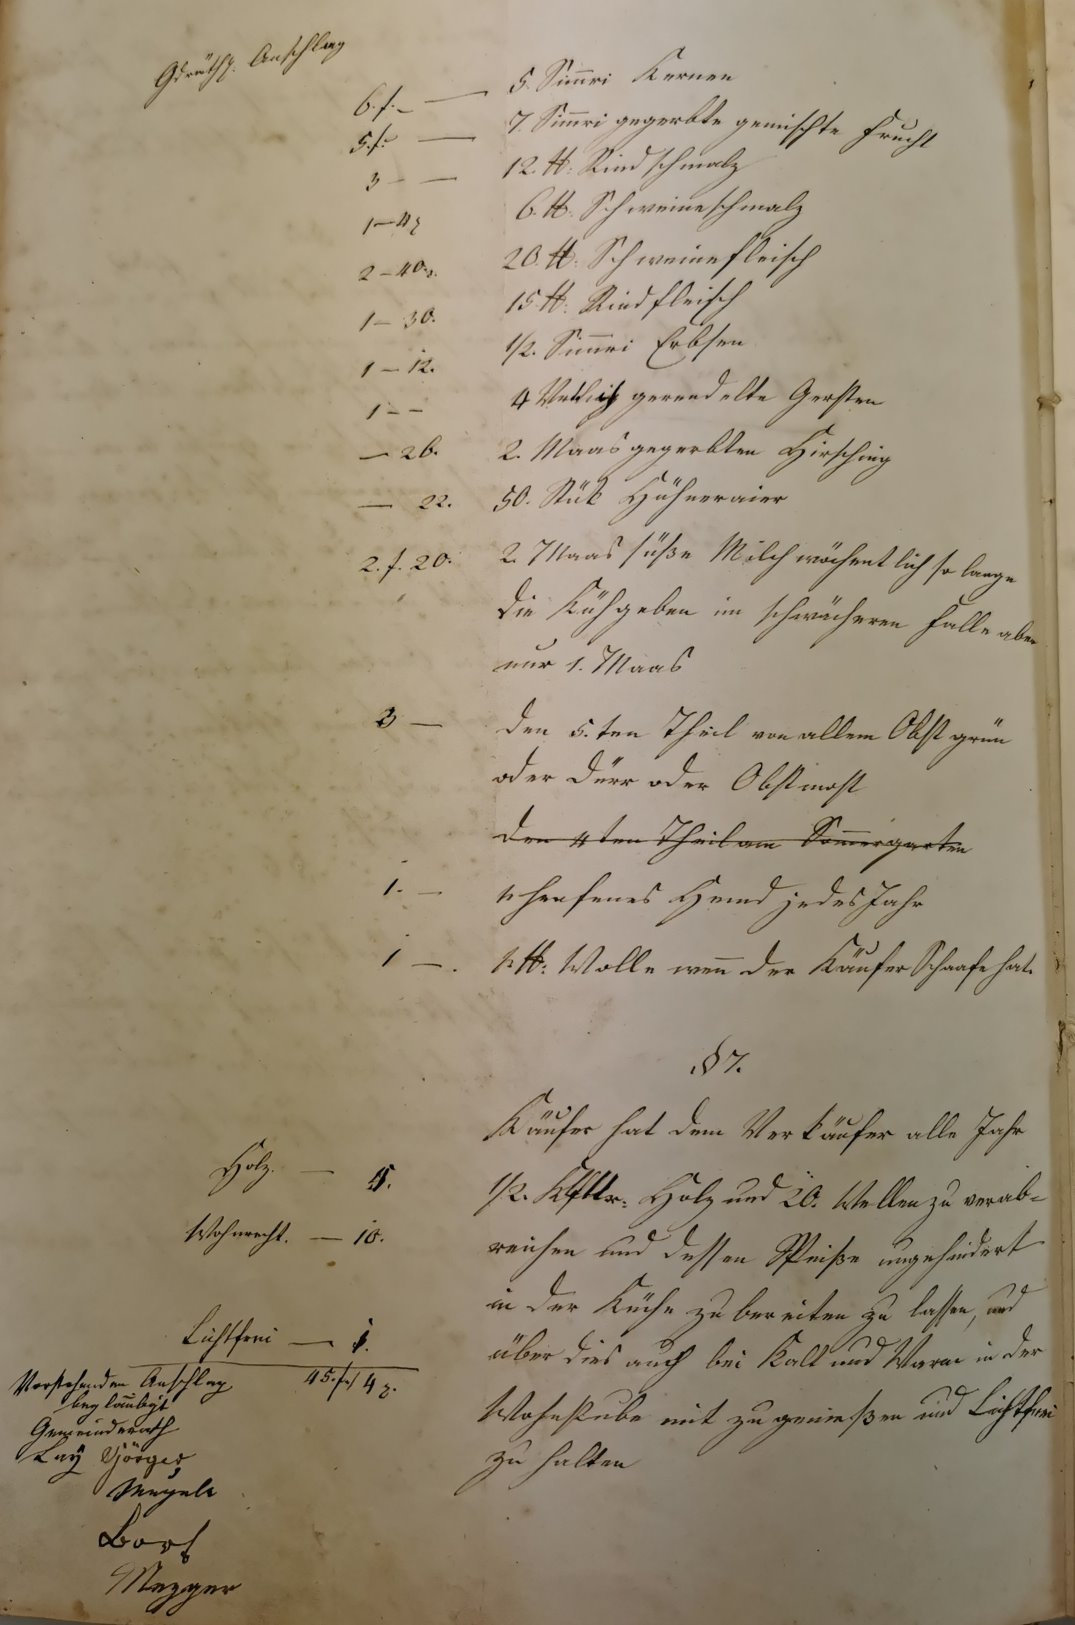 Gdräthl. Anschlag
6.f. — 5. Simri Kernen
5.f. — 7. Simri gegerbte gemischte Frucht
3 — — 12. ℔. Rindschmalz
1—4 6. ℔. Schweineschmalz
2—40. 20. ℔. Schweinefleisch
1—30. 15 ℔. Rindfleisch
1—12. 1/2. Simri Erbsen
1 — — 4 gerendelte Gersten
— 26. 2. Maas gegerbten Hirsching
— 22. 50. Stük Hühneraier
2.f. 20. 2. Maas süße Milch wöchentlich so lange
die Kühgeben im schwächeren Falle aber
nur 1. Maas
3 — den 5.ten Theil von allem Obst grün
oder dürr oder Obstmost
den 4ten Theil am Sommergarten
1. — 1. henfenes Hemd jedes Jahr
1 —. 1. ℔. Wolle wen̄ der Käufer Schaafe hat.
§ 7.
Käufer hat dem Verkäufer alle Jahr
Holz. — 5. 1/2. Klftr. Holz und 20. Wellen zu verab-
Wohnrecht. — 10. reichen und dessen Speiße ungehindert
in der Küche zu bereiten zu lassen, und
Lichtfrei — 1. über dies auch bei Kalt und Warm in der
45.f. 4 Wohnstube mit zu genießen und Lichtfrei
zu halten
Vorstehenden Anschlag
beglaubigt
Gemeinderath
Lay Görger
Mezger